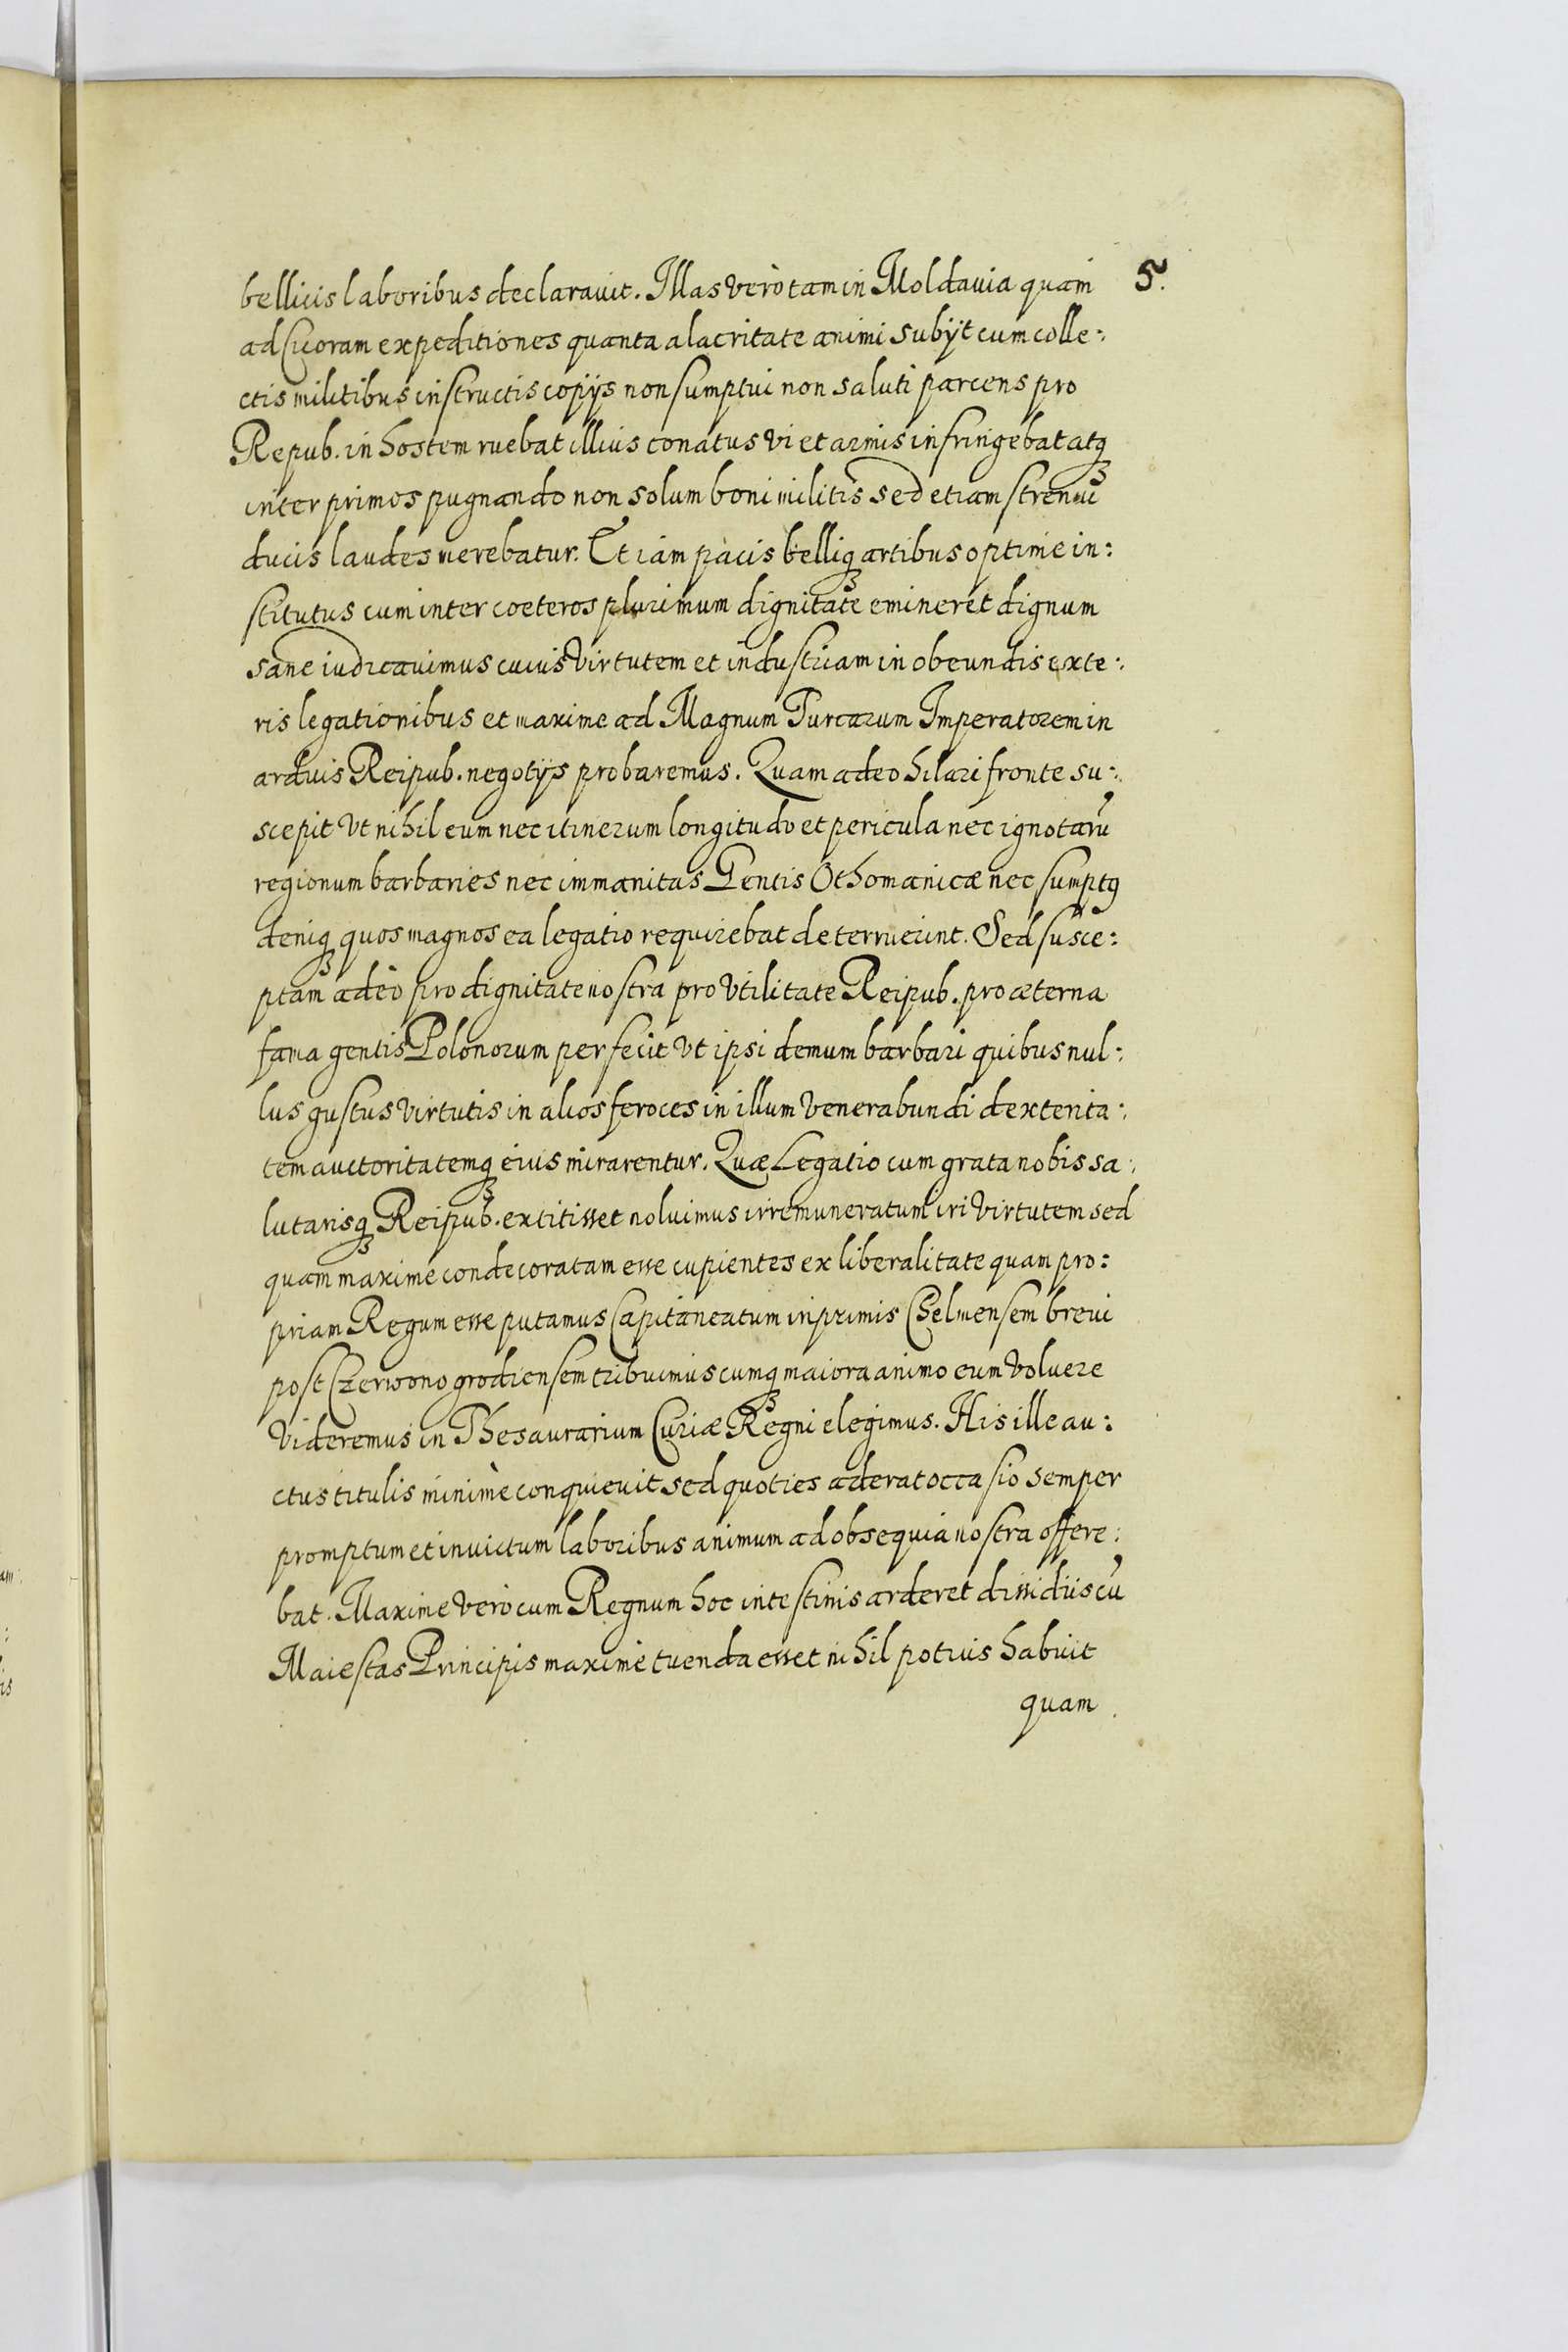 bellicis laboribus declarauit. Illas verò tam in Moldauia quam 5.
ad Cicoram expeditiones quanta alacritate animi subijt cum colle:
ctis militibus instructis copijs non sumptui non saluti parcens pro
Repub. in hostem ruebat illius conatus vi et armis infringebat atq3
inter primos pugnando non solum boni militis sed etiam strenui
ducis laudes merebatur. Et iam pacis belliq3 artibus optime in:
stitutus cum inter coeteros plurimum dignitate emineret dignum
sane iudicauimus cuius virtutem et industriam in obeundis exte:
ris legationibus et maxime ad Magnum Turcarum Imperatorem in
arduis Reipub. negotijs probaremus. Quam adeo hilari fronte su:
scepit vt nihil eum nec itinerum longitudo et pericula nec ignotarũ
regionum barbaries nec immanitas Gentis Othomanicæ nec sumptq
deniq3 quos magnos ea legatio requirebat deterruerint. Sed susce:
ptam adeò pro dignitate nostra pro vtilitate Reipub. pro æterna
fama gentis Polonorum perfecit vt ipsi demum barbari quibus nul:
lus gustus virtutis in alios feroces in illum venerabundi dexterita:
tem auctoritatemq3 eius mirarentur. Quæ Legatio cum grata nobis sa:
lutarisq3 Reipub. extitisset noluimus irremuneratum iri virtutem sed
quam maxime condecoratam esse cupientes ex liberalitate quam pro:
priam Regum esse putamus Capitaneatum inprimis Chelmensem breui
post Czerwonogrodiensem tribuimus cumq3 maiora animo eum voluere
videremus in Thesaurarium Curiæ Regni elegimus. His ille au:
ctus titulis minimè conquieuit sed quoties aderat occasio semper
promptum et inuictum laboribus animum ad obsequia nostra offere:
bat. Maxime verò cum Regnum hoc intestinis arderet dissidiis cũ
Maiestas Principis maximè tuenda esset nihil potius habuit
quam